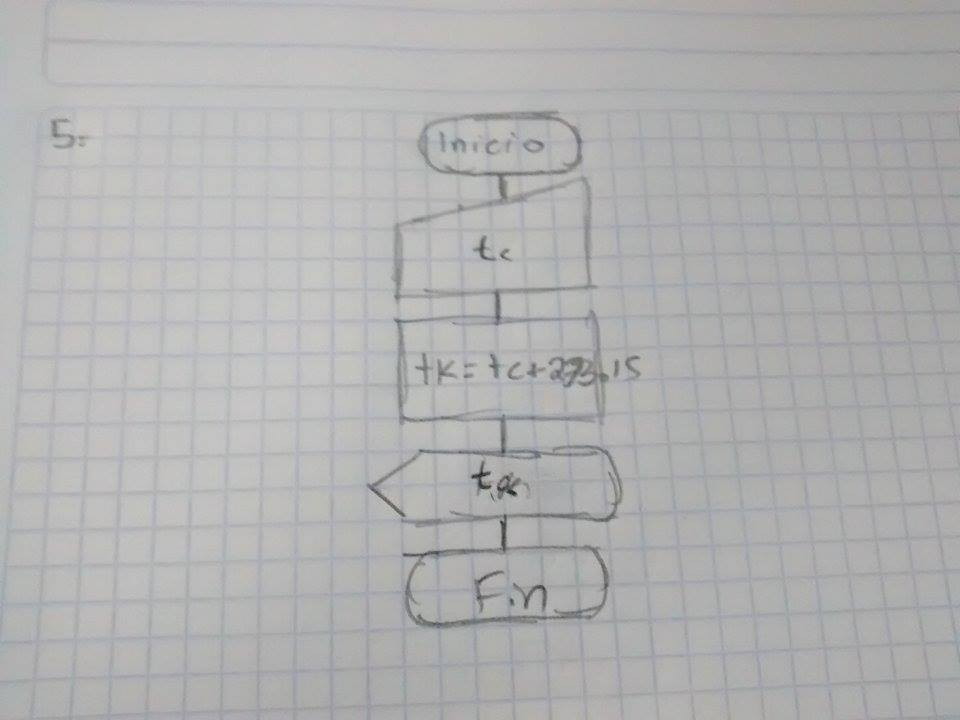 5.
Inicio
tc
tK = tc + 273.15
Fin